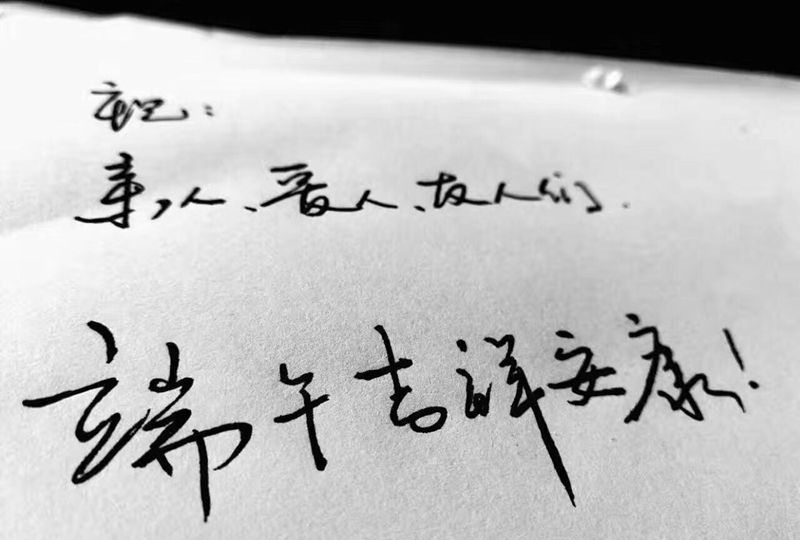 亲人、爱人、友人们.
端午吉祥安康!